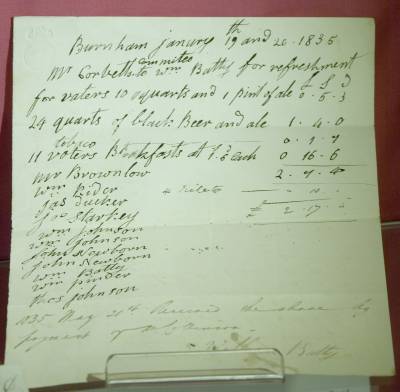 Burnham janury 19th and 20. 1835
committeo
Mr Corbett to Wm Batty for refreshment
£ S D
for voters 10 quarts and 1 pint of ale 0. 5. 3
24 quarts of black Beer and ale 1. 4. 0
tobaco 0. 1. 7
11 voters Breakfosts at 1.6 each 0 16-6
Mr Brownlow 2. 7. 4
Wm Rider
Gas Tucker
Jos Starkey £ 2. 17.
Wm Johnson
Wm Johnson
John Newborn
John Newborn
Wm Batty
Wm pinder
thos johnson
1835 May 21st Received the above by
payment of
Batty